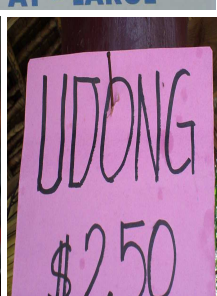 AT LARGE
UDONG
$2.50